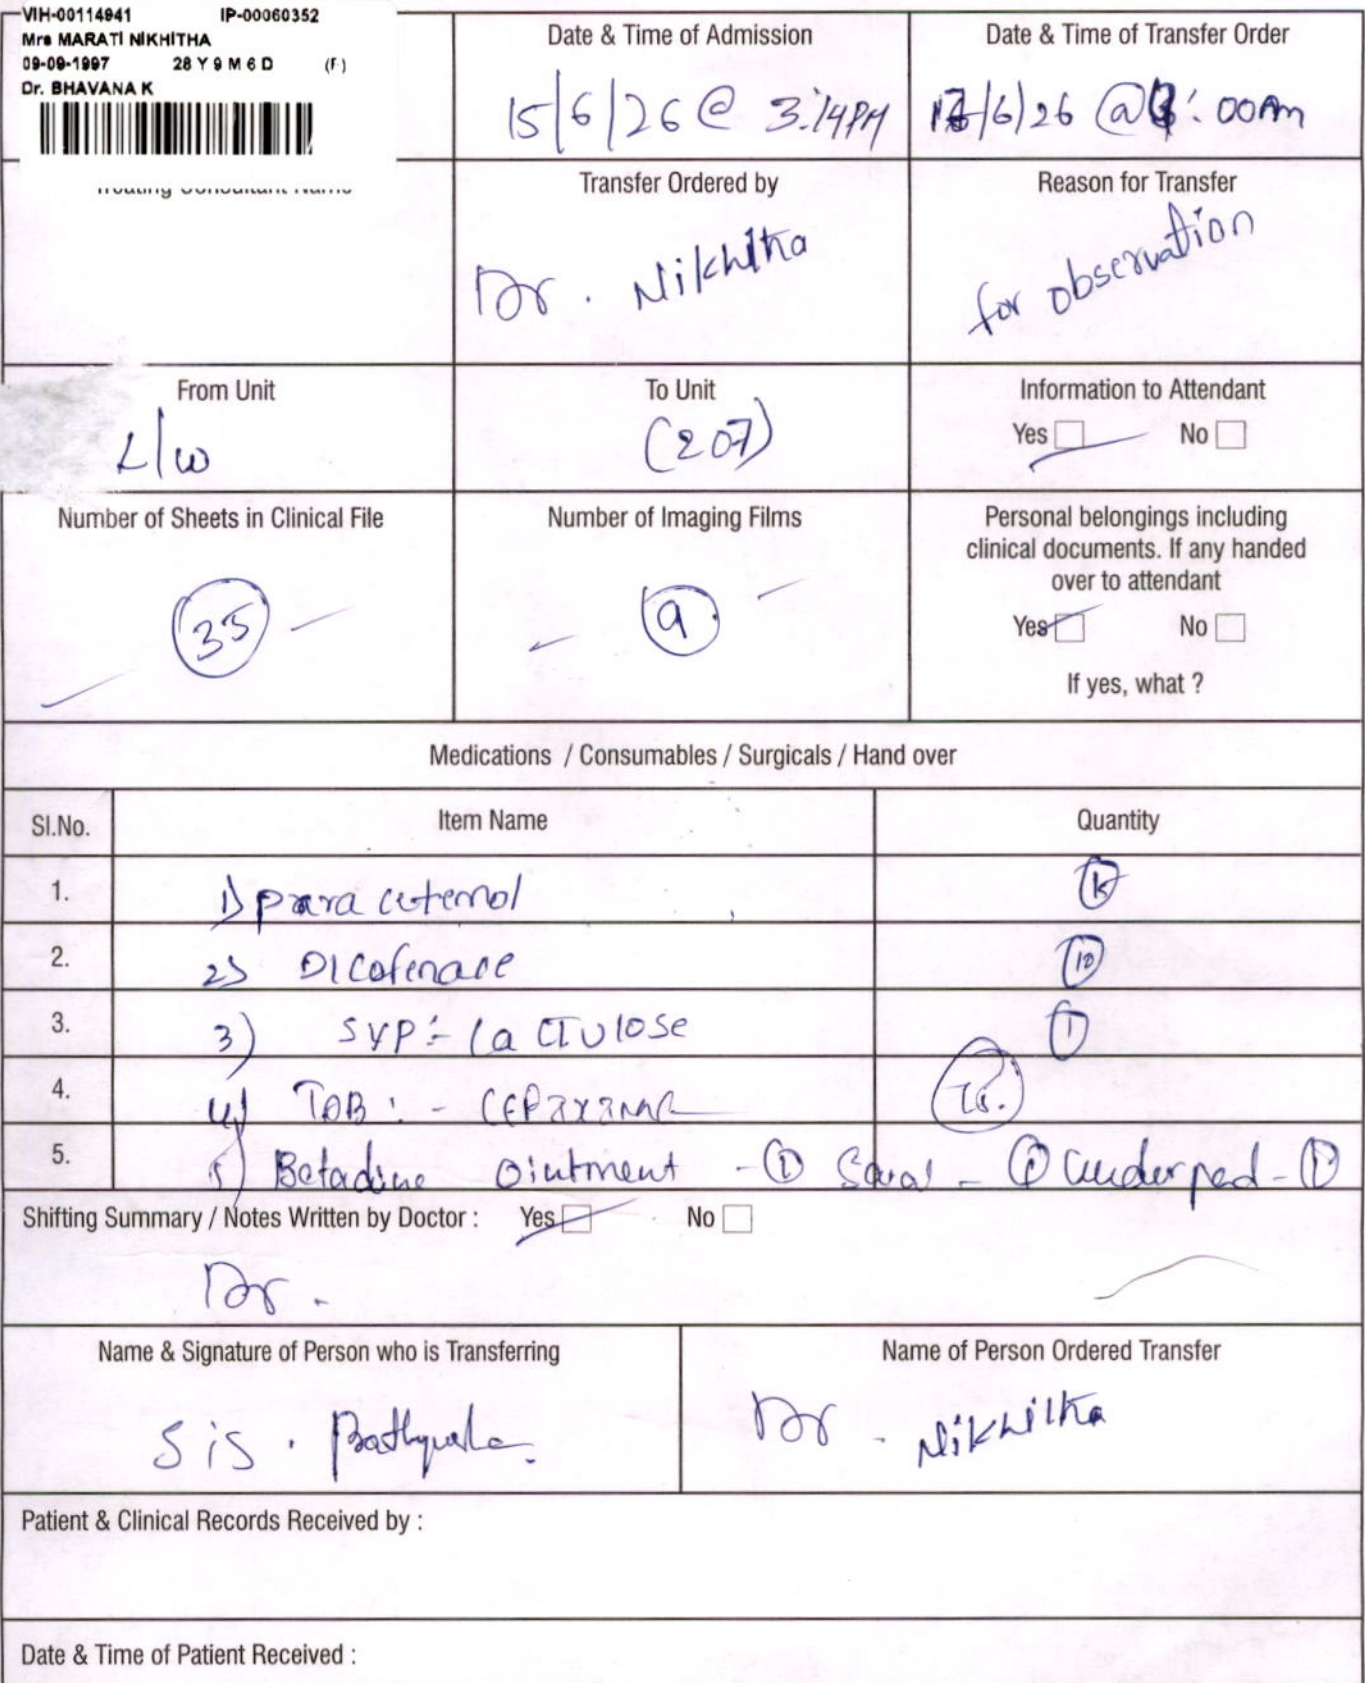 VIH-00114941 IP-00060352
Mrs MARATI NIKHITHA
09-09-1997 28 Y 9 M 6 D (F)
Dr. BHAVANA K
Treating Consultant Name
Date & Time of Admission
15/6/26 @ 3:14PM
Date & Time of Transfer Order
/6/26 @ :00Am
Transfer Ordered by
Dr. Nikhitha
Reason for Transfer
for observation
From Unit
L/w
To Unit
(207)
Information to Attendant
Yes No
Number of Sheets in Clinical File
35
Number of Imaging Films
9
Personal belongings including
clinical documents. If any handed
over to attendant
Yes No
If yes, what ?
Medications / Consumables / Surgicals / Hand over
Sl.No. Item Name Quantity
1. 1) para cetemol
2. 2) Dicofenace 10
3. 3) SYP:- laCTULOSE 1
4. 4) TAB :-
5. 5) Betadine Ointment - 1 - 1 underpad - 1
Shifting Summary / Notes Written by Doctor : Yes No
Dr.
Name & Signature of Person who is Transferring
Sis.
Name of Person Ordered Transfer
Dr. Nikhitha
Patient & Clinical Records Received by :
Date & Time of Patient Received :